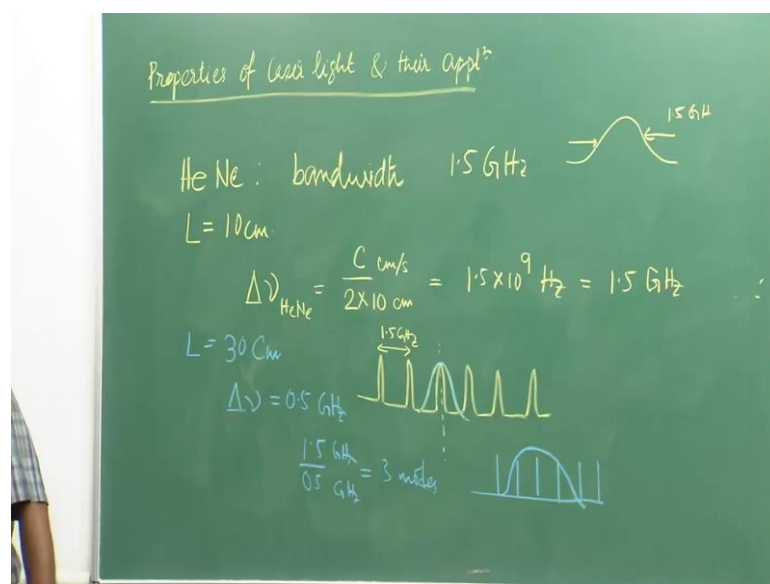 Properties of laser light & their applⁿ
1.5 GH
HeNe : bandwidth 1.5 GHz
L = 10 cm
Δν HeNe = C cm/s / 2×10 cm = 1.5×10⁹ Hz = 1.5 GHz
L = 30 Cm
1.5 GHz
Δν = 0.5 GHz
1.5 GHz / 0.5 GHz = 3 modes